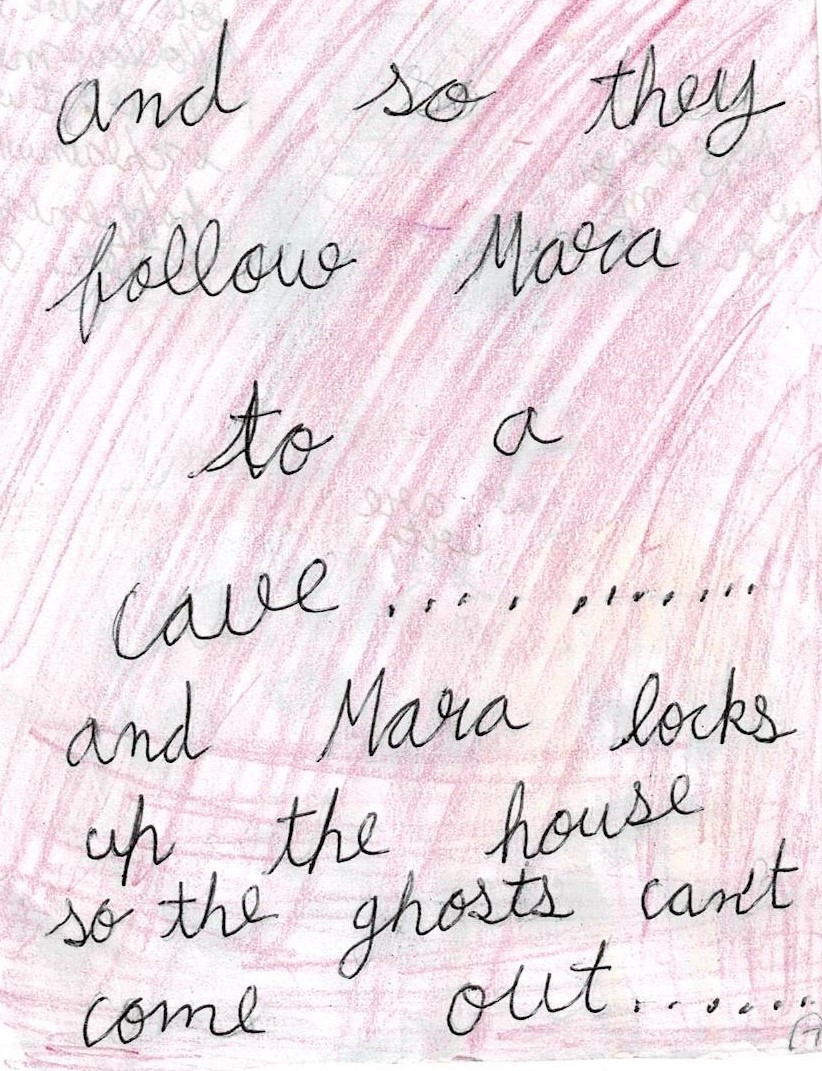 and so they
follow Mara
to a
cave .... ........
and Mara locks
up the house
so the ghosts can't
come out.......